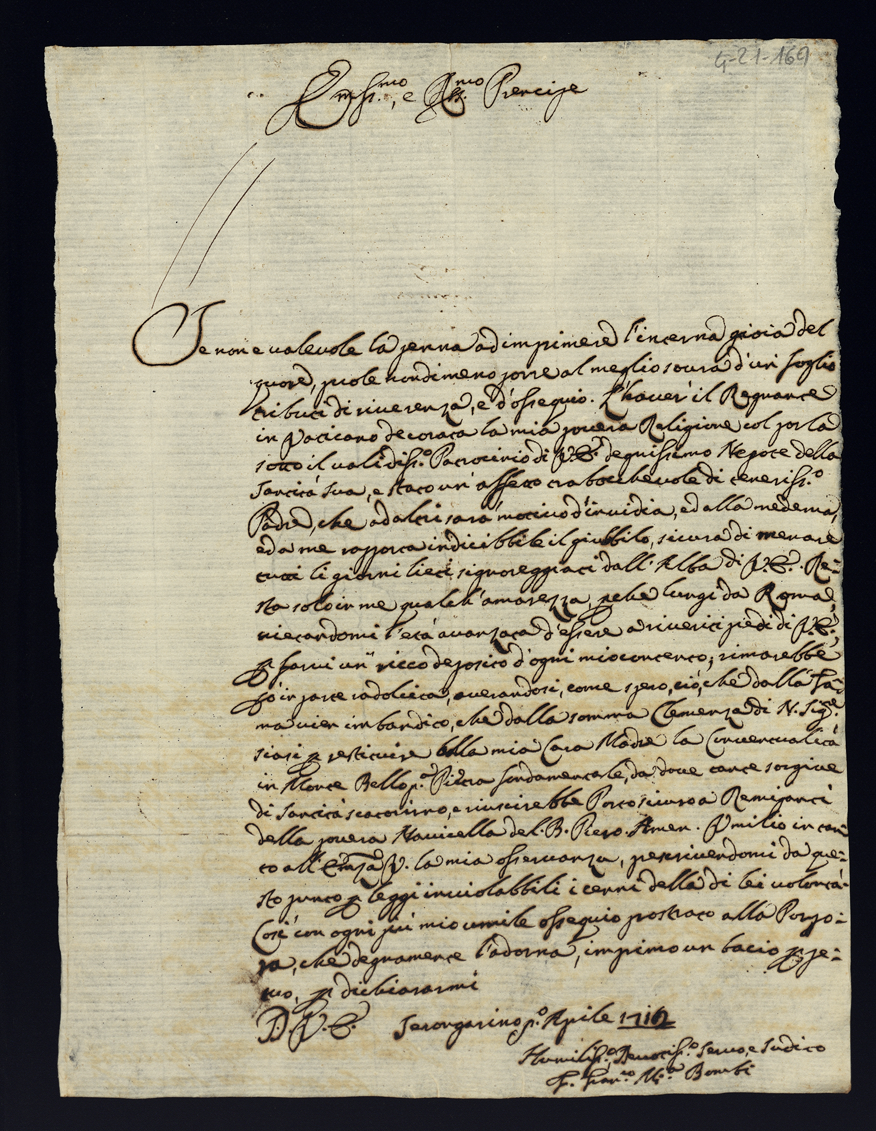 G-21-169
Em.ssmo, e R.smo Prencipe
Se non e valevole la penna ad imprimere l'interna gioia del
cuore, puole nondimeno porre al meglio soura d'un foglio
tributi di riverenza, e d'ossequio. L'haver il Regnante
in Vaticano decorata la mia povera Religione col porla
sotto il validiss.o Patrocinio di V.E. degnissimo Nepote della
Santità Sua, e stato un' affetto trabocchevole di teneriss.o
Padre, che ad altri sarà motivo d'invidia, ed alla medema,
ed a me rapporta indicibbile il giubbilo, sicura di menare
tutti li giorni lieti signoreggiati dall'Alba di V.E. Re=
sta solo in me qualch'amarezza, pche lungi da Roma,
vietandomi l'età avanzata d'essere a riverir i piedi di V.E,
p farvi un ricco deposito d'ogni mio contento; rimarebbe
pò in parte radolcita, averandosi, come spero, ciò, che dalla Fa=
ma vien imbandito, che dalla somma Clemenza di N. Sig.re
siasi p restituire alla mia Cara Madre la Conventualità
in Monte Bello p.a Pietra fondamentale, da dove tante sorgive
di Santità scatorirno, e riuscirebbe Porto sicuro a Remiganti
della povera Navicella del B. Piero. Amen. Vmilio in tan=
to all' V. la mia osservanza, pescrivendomi da que=
sto punto p leggi inviolabbili i cenni della di lei volontà.
Così con ogni più mio umile ossequio prostrato alla Porpo=
ra, che degnamente l'adorna, imprimo un bacio p pe=
no, p dichiararmi
D. V. E. Serongarino p.o Aprile
Humiliss.o Devotiss.o Servo, e Sudito
F. Fran.co M.a Bombi